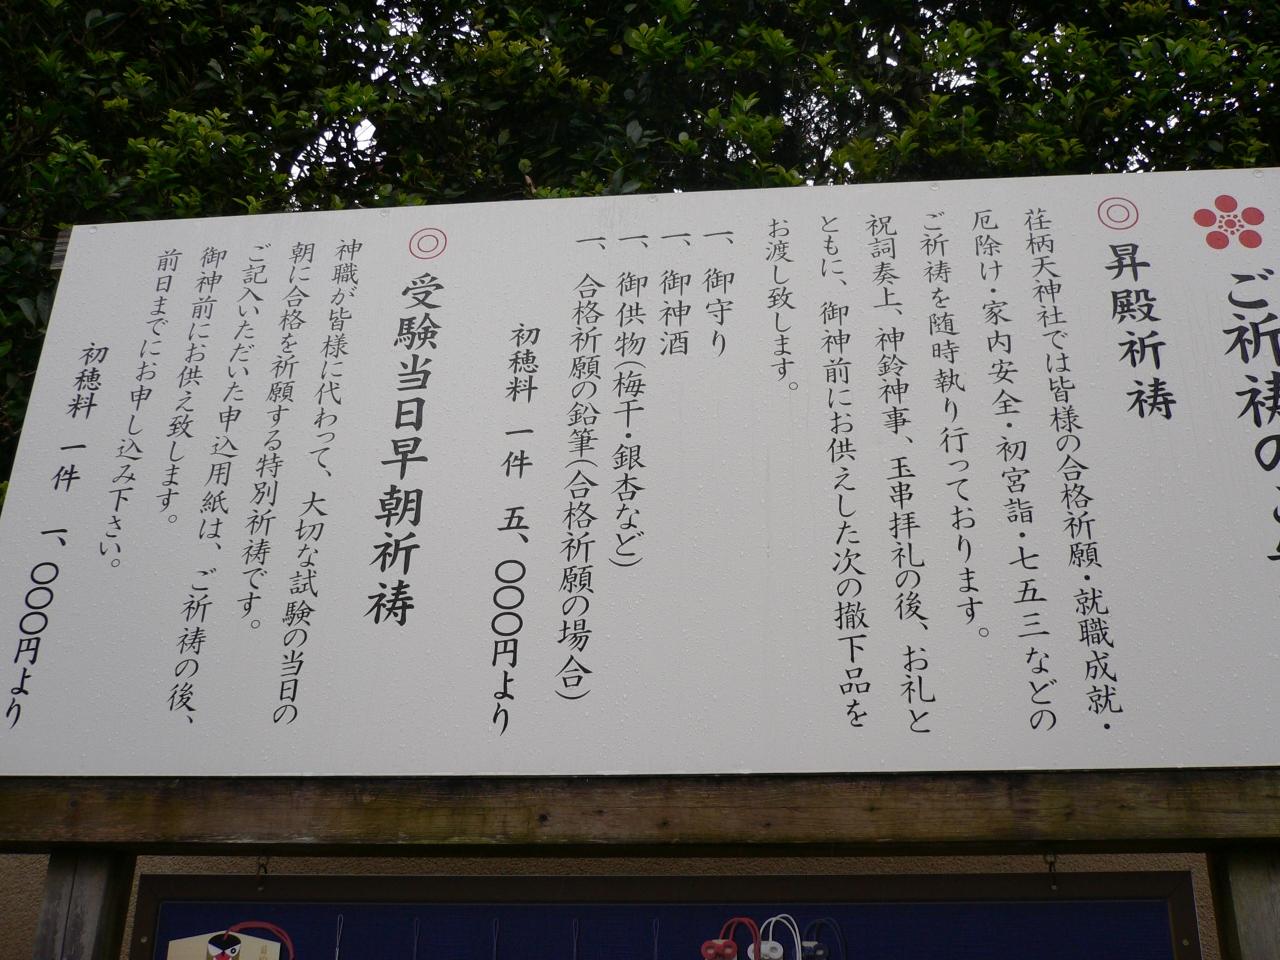 ご祈祷の
昇殿祈祷
荏柄天神社では皆様の合格祈願・就職成就・
厄除け・家内安全・初宮詣・七五三などの
ご祈祷を随時執り行っております。
祝詞奏上、神鈴神事、玉串拝礼の後、お礼と
ともに、御神前にお供えした次の撤下品を
お渡し致します。
一、御守り
一、御神酒
一、御供物(梅干・銀杏など)
一、合格祈願の鉛筆(合格祈願の場合)
初穂料 一件 五、〇〇〇円より
受験当日早朝祈祷
神職が皆様に代わって、大切な試験の当日の
朝に合格を祈願する特別祈祷です。
ご記入いただいた申込用紙は、ご祈祷の後、
御神前にお供え致します。
前日までにお申し込み下さい。
初穂料 一件 一、〇〇〇円より